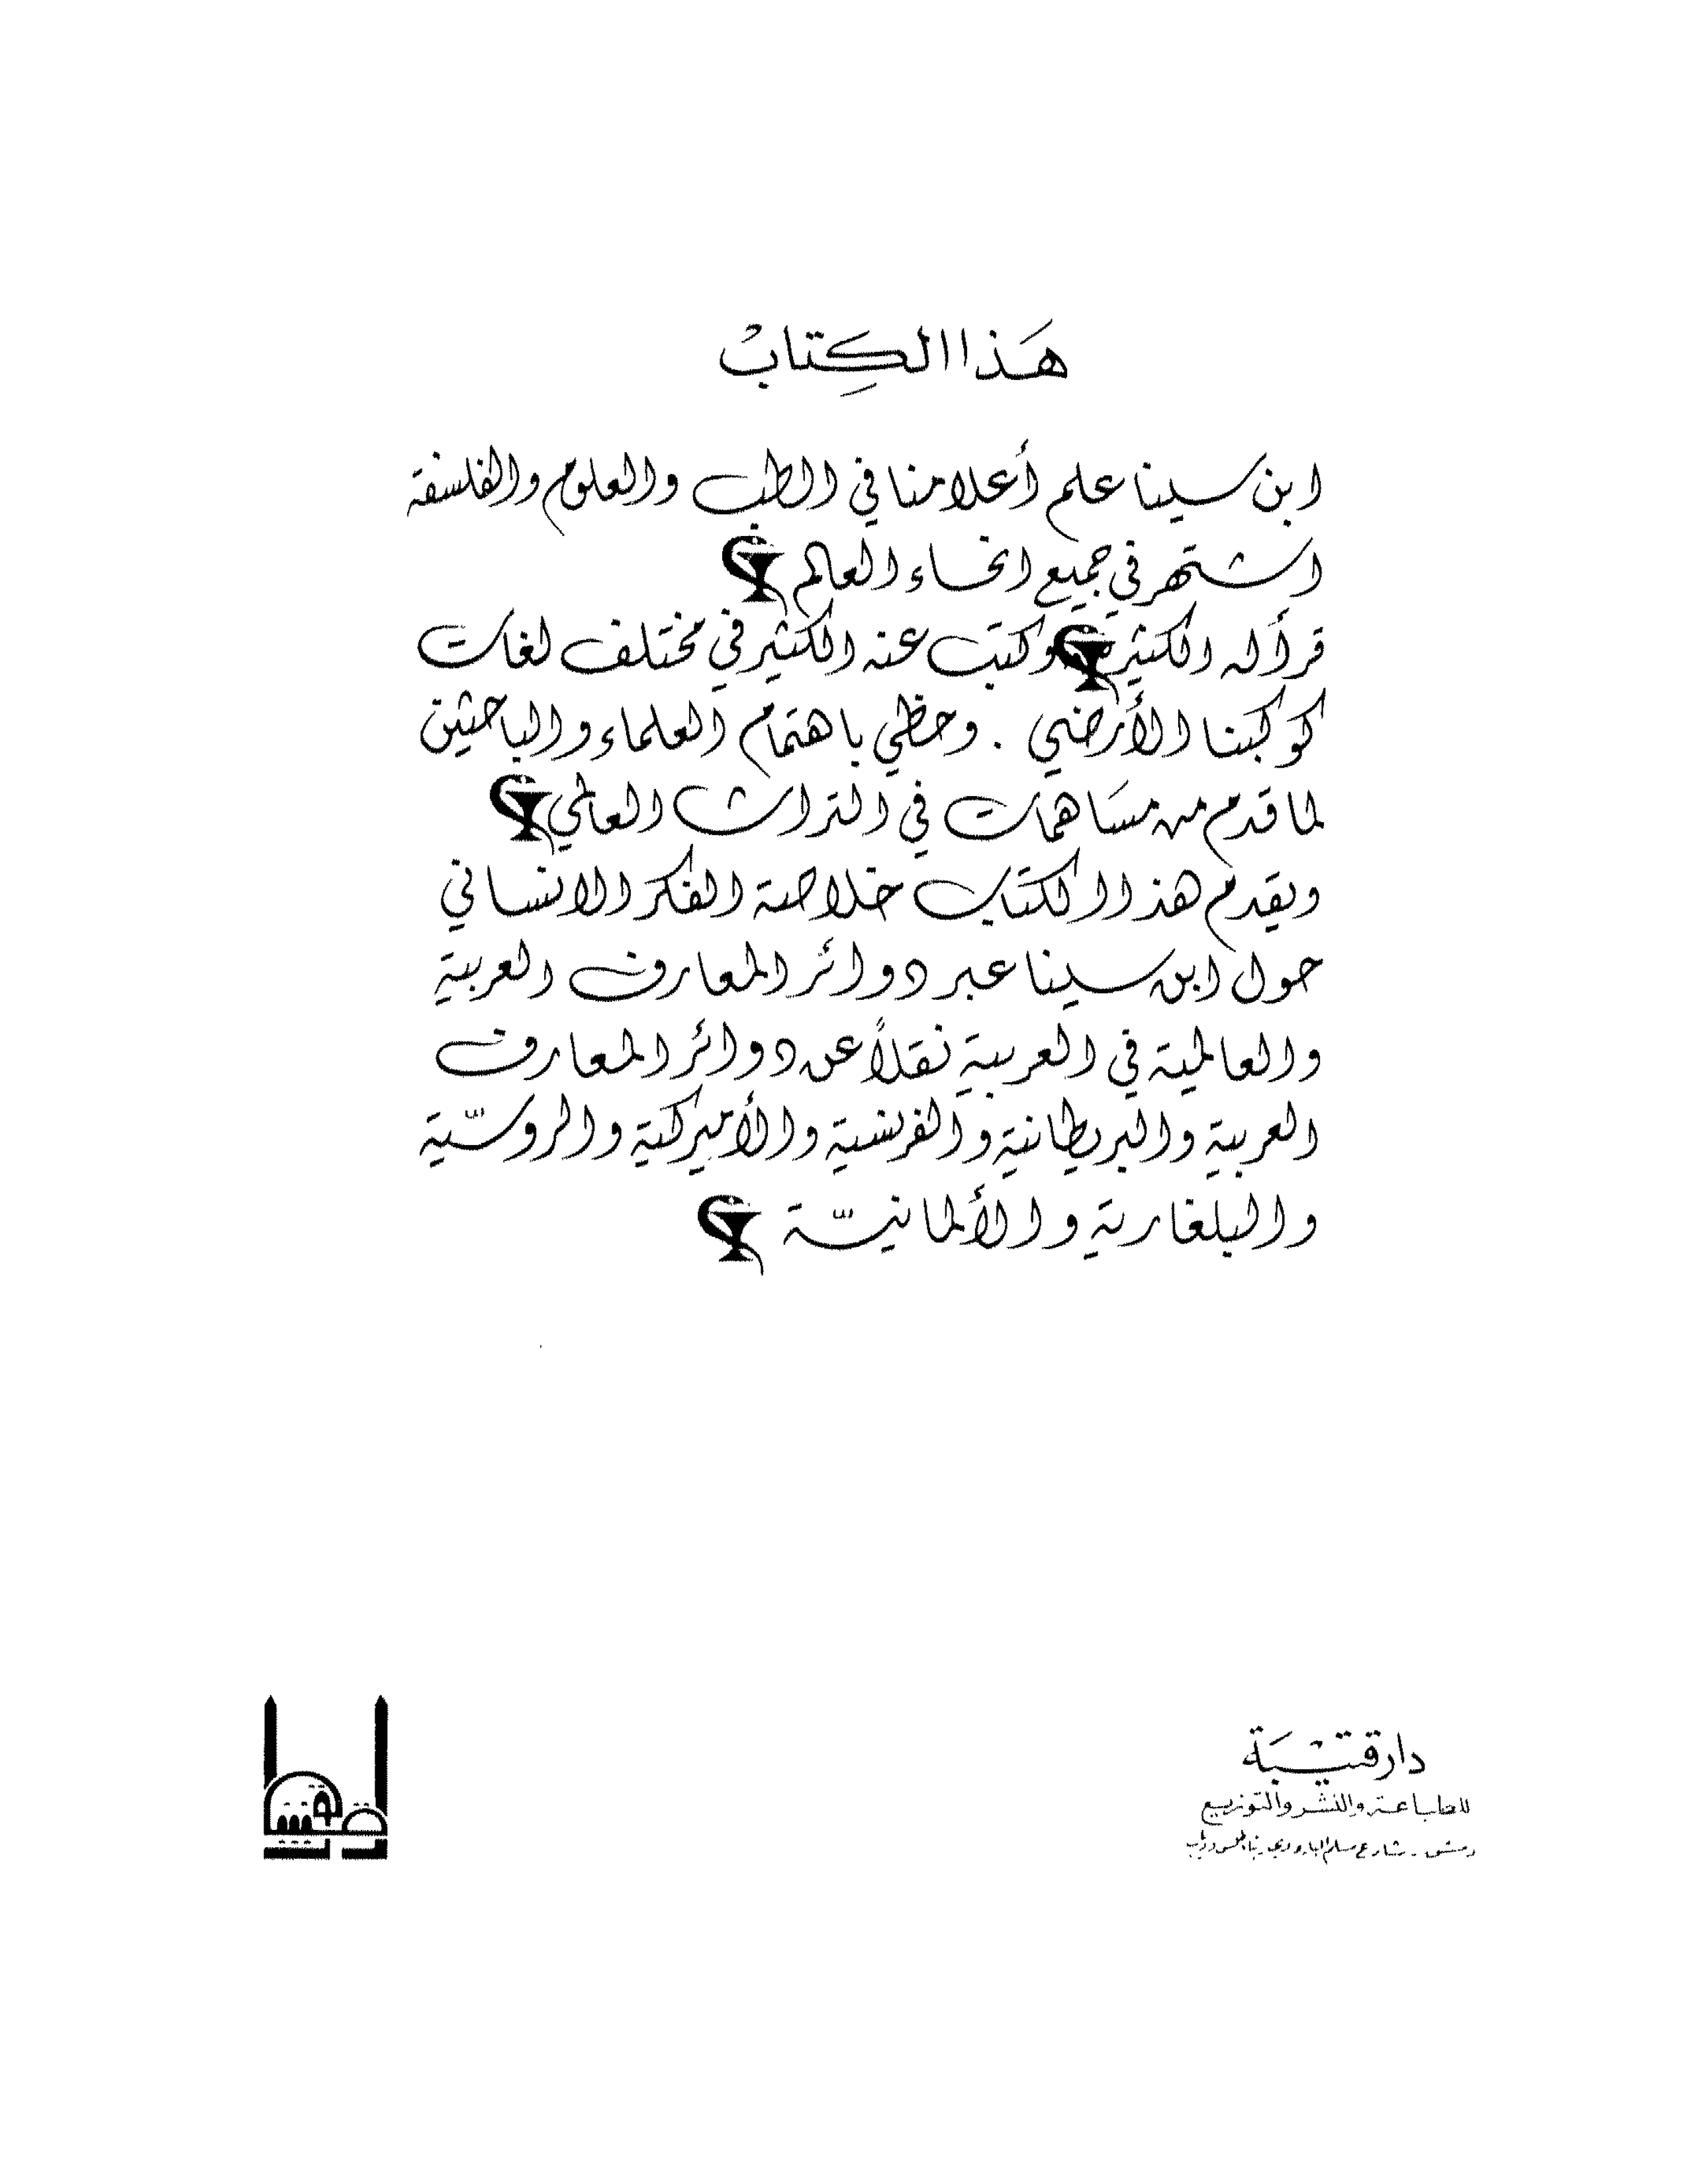 هَذا الكِتابْ
ابن سينا علم أعلامنا في الطب والعلوم والفلسفة
اشتهر في جميع انحاء العالم
قرأ له الكثير وكتب عنه الكثير في مختلف لغات
كوكبنا الأرضي . وحظي باهتمام العلماء والباحثين
لما قدم من مسَاهمات في التراث العالمي
ويقدم هذا الكتاب خلاصة الفكر الانساني
حول ابن سينا عبر دوائر المعارف العربية
والعالمية في العربية نقلاً عن دوائر المعارف
العربية والبريطانية والفرنسية والأميركية والروسّية
والبلغارية والألمانيّة
دار قتيْبَة
للطباعة والنشر والتوزيع
دمشق - شارع مسلم البارودي